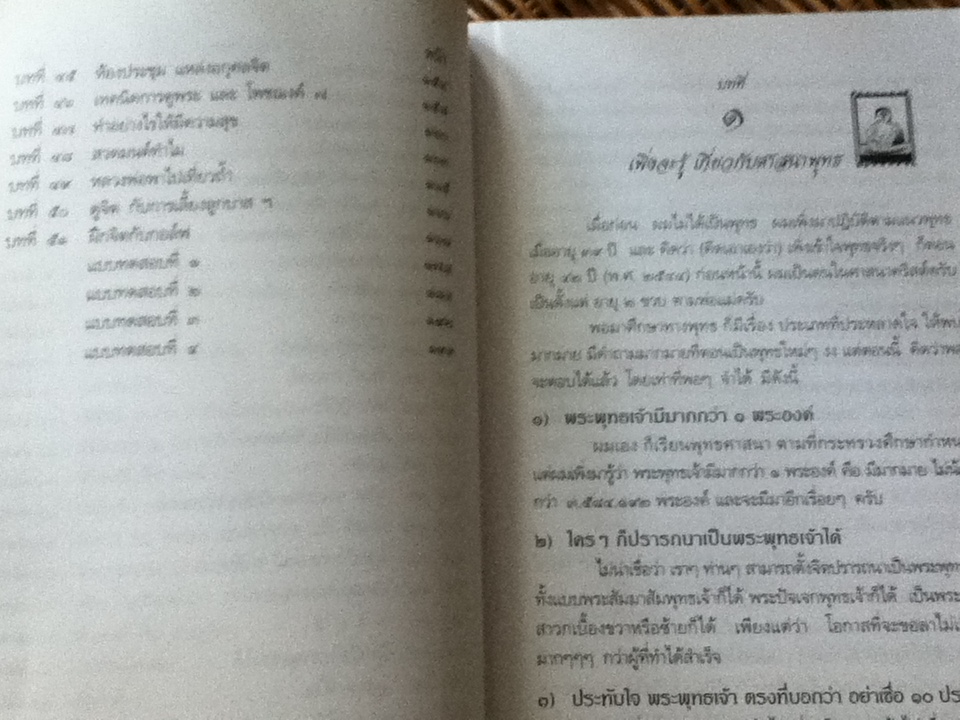 หน้า
บทที่ ๔๕ ห้องประชุม แหล่งอกุศลจิต
บทที่ ๔๖ เทคนิคการดูพระ และ โพชฌงค์ ๗
บทที่ ๔๗ ทำอย่างไรให้มีความสุข
บทที่ ๔๘ สวดมนต์ทำไม
บทที่ ๔๙ หลวงพ่อพาไปเที่ยวถ้ำ
บทที่ ๕๐ ดูจิต กับการเลี้ยงลูกบาส ฯ
บทที่ ๕๑ ฝึกจิตกับกอล์ฟ
แบบทดสอบที่ ๑
แบบทดสอบที่ ๒
แบบทดสอบที่ ๓
แบบทดสอบที่ ๔
บทที่
๑
เพิ่งจะรู้ เกี่ยวกับศาสนาพุทธ
เมื่อก่อน ผมไม่ได้เป็นพุทธ ผมเพิ่งมาปฏิบัติตามแนวพุทธ
เมื่ออายุ ๓๙ ปี และ คิดว่า (คิดเอาเองว่า) เพิ่งเข้าใจพุทธจริงๆ ก็ตอน
อายุ ๔๒ ปี (พ.ศ. ๒๕๔๔) ก่อนหน้านี้ ผมเป็นคนในศาสนาคริสต์ครับ
เป็นตั้งแต่ อายุ ๒ ขวบ ตามพ่อแม่ครับ
พอมาศึกษาทางพุทธ ก็มีเรื่อง ประเภทที่ประหลาดใจ ให้พบ
มากมาย มีคำถามมากมายที่ตอนเป็นพุทธใหม่ๆ งง แต่ตอนนี้ คิดว่าพอ
จะตอบได้แล้ว โดยเท่าที่พอๆ จำได้ มีดังนี้
๑) พระพุทธเจ้ามีมากกว่า ๑ พระองค์
ผมเอง ก็เรียนพุทธศาสนา ตามที่กระทรวงศึกษากำหน
แต่ผมเพิ่งมารู้ว่า พระพุทธเจ้ามีมากกว่า ๑ พระองค์ คือ มีมากมาย ไม่น้อ
กว่า ๓,๕๘๔,๑๙๒ พระองค์ และจะมีมาอีกเรื่อยๆ ครับ
๒) ใครๆ ก็ปรารถนาเป็นพระพุทธเจ้าได้
ไม่น่าเชื่อว่า เราๆ ท่านๆ สามารถตั้งจิตปรารถนาเป็นพระพุทธ
ทั้งแบบพระสัมมาสัมพุทธเจ้าก็ได้ พระปัจเจกพุทธเจ้าก็ได้ เป็นพระ
สาวกเบื้องขวาหรือซ้ายก็ได้ เพียงแต่ว่า โอกาสที่จะขอลาไม่เ
มากๆๆๆ กว่าผู้ที่ทำได้สำเร็จ
๓) ประทับใจ พระพุทธเจ้า ตรงที่บอกว่า อย่าเชื่อ ๑๐ ปร